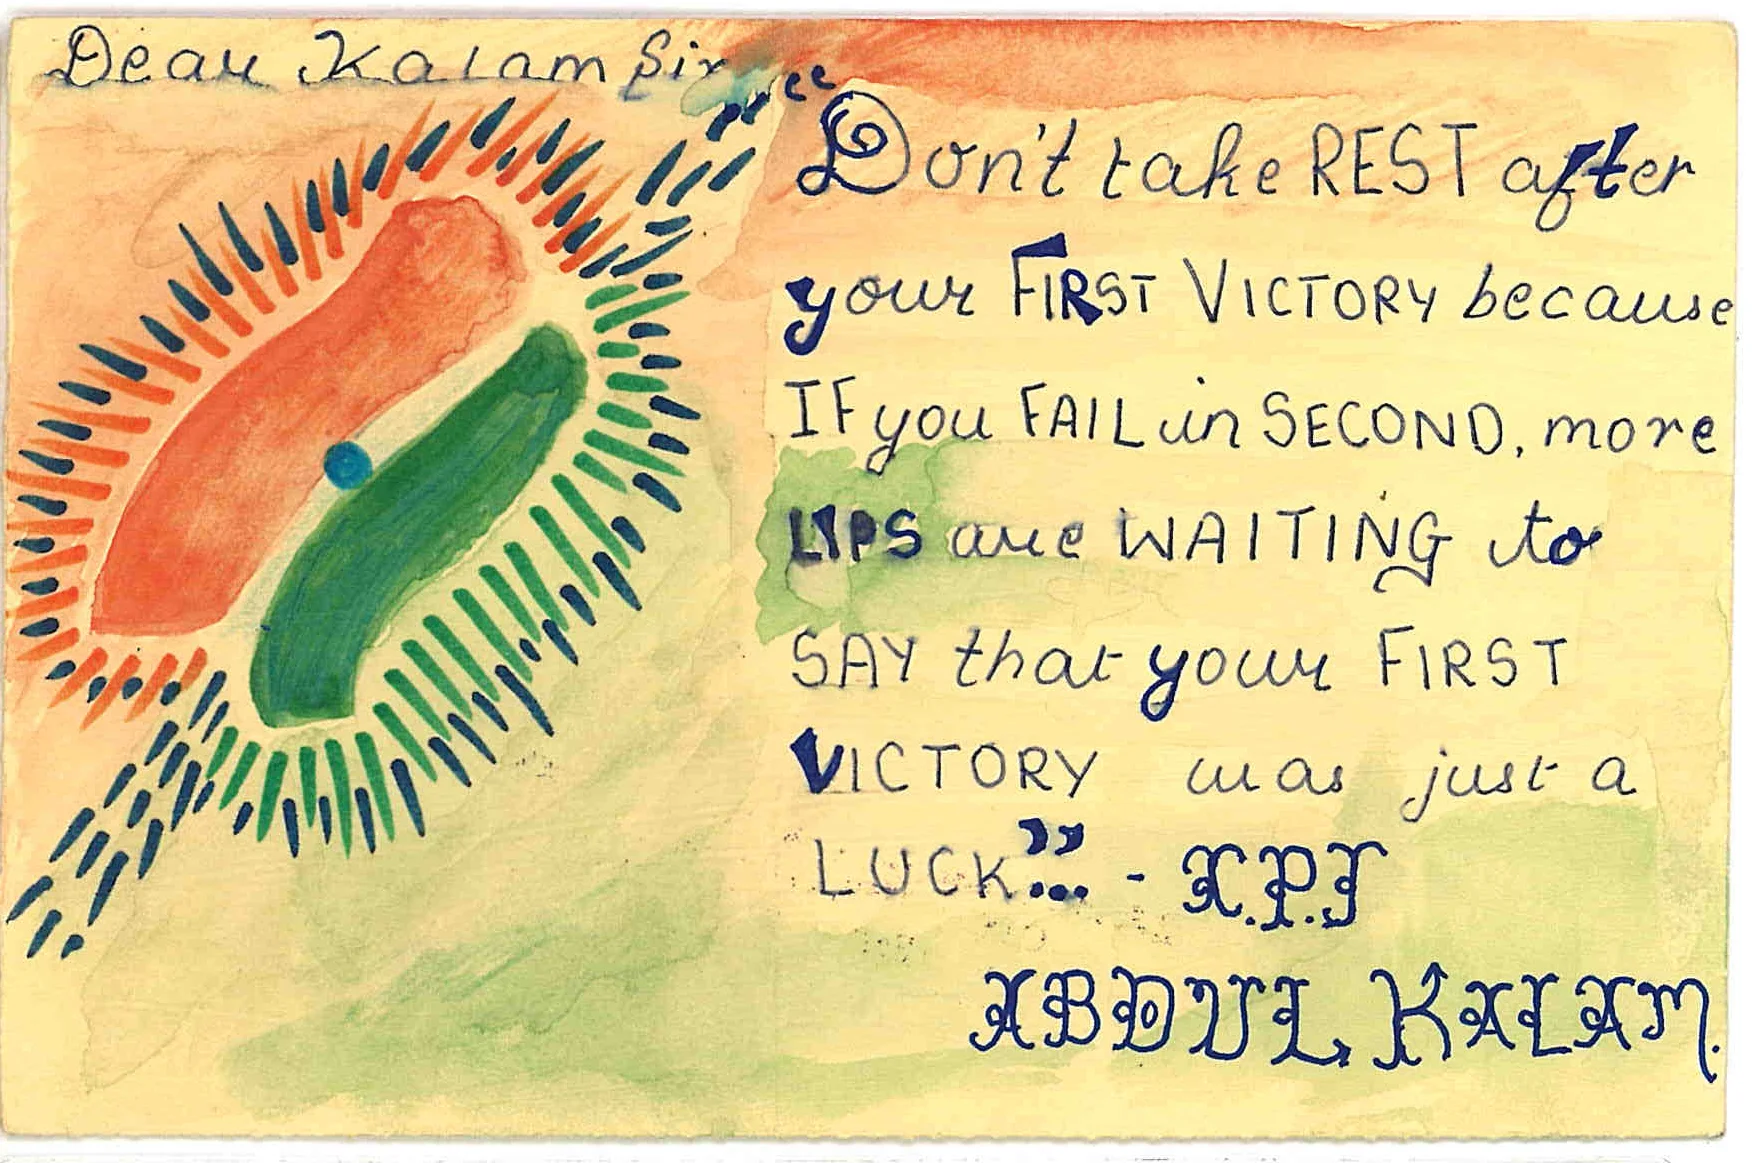 Dear Kalam Sir
“Don't take REST after
your FIRST VICTORY because
IF you FAIL in SECOND, more
LIPS are WAITING to
SAY that your FIRST
VICTORY was just a
LUCK”... - A.P.J
ABDUL KALAM.